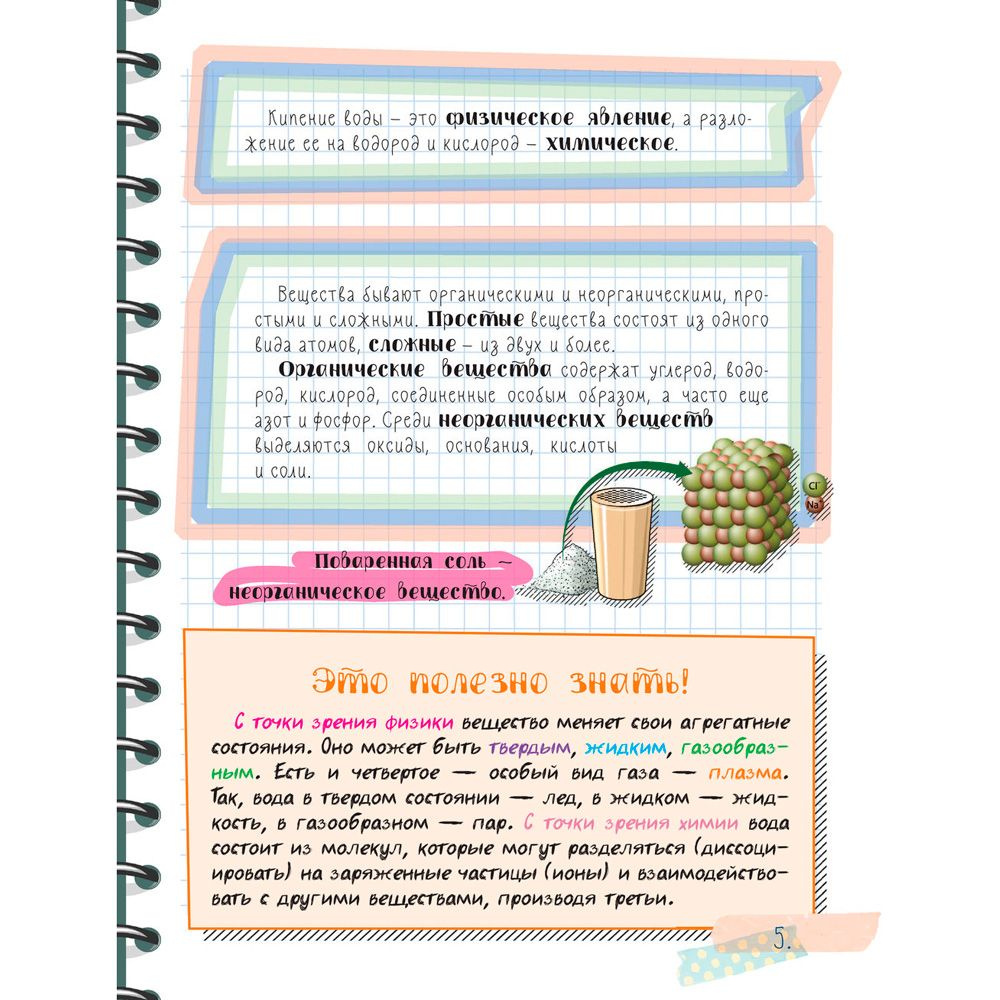 Кипение воды – это физическое явление, а разло-
жение ее на водород и кислород – химическое.
Вещества бывают органическими и неорганическими, про-
стыми и сложными. Простые вещества состоят из одного
вида атомов, сложные – из двух и более.
Органические вещества содержат углерод, водо-
род, кислород, соединенные особым образом, а часто еще
азот и фосфор. Среди неорганических веществ
выделяются оксиды, основания, кислоты
и соли.
Cl⁻
Na⁺
Поваренная соль –
неорганическое вещество.
Это полезно знать!
С точки зрения физики вещество меняет свои агрегатные
состояния. Оно может быть твердым, жидким, газообраз-
ным. Есть и четвертое — особый вид газа — плазма.
Так, вода в твердом состоянии — лед, в жидком — жид-
кость, в газообразном — пар. С точки зрения химии вода
состоит из молекул, которые могут разделяться (диссоци-
ировать) на заряженные частицы (ионы) и взаимодейство-
вать с другими веществами, производя третьи.
5.